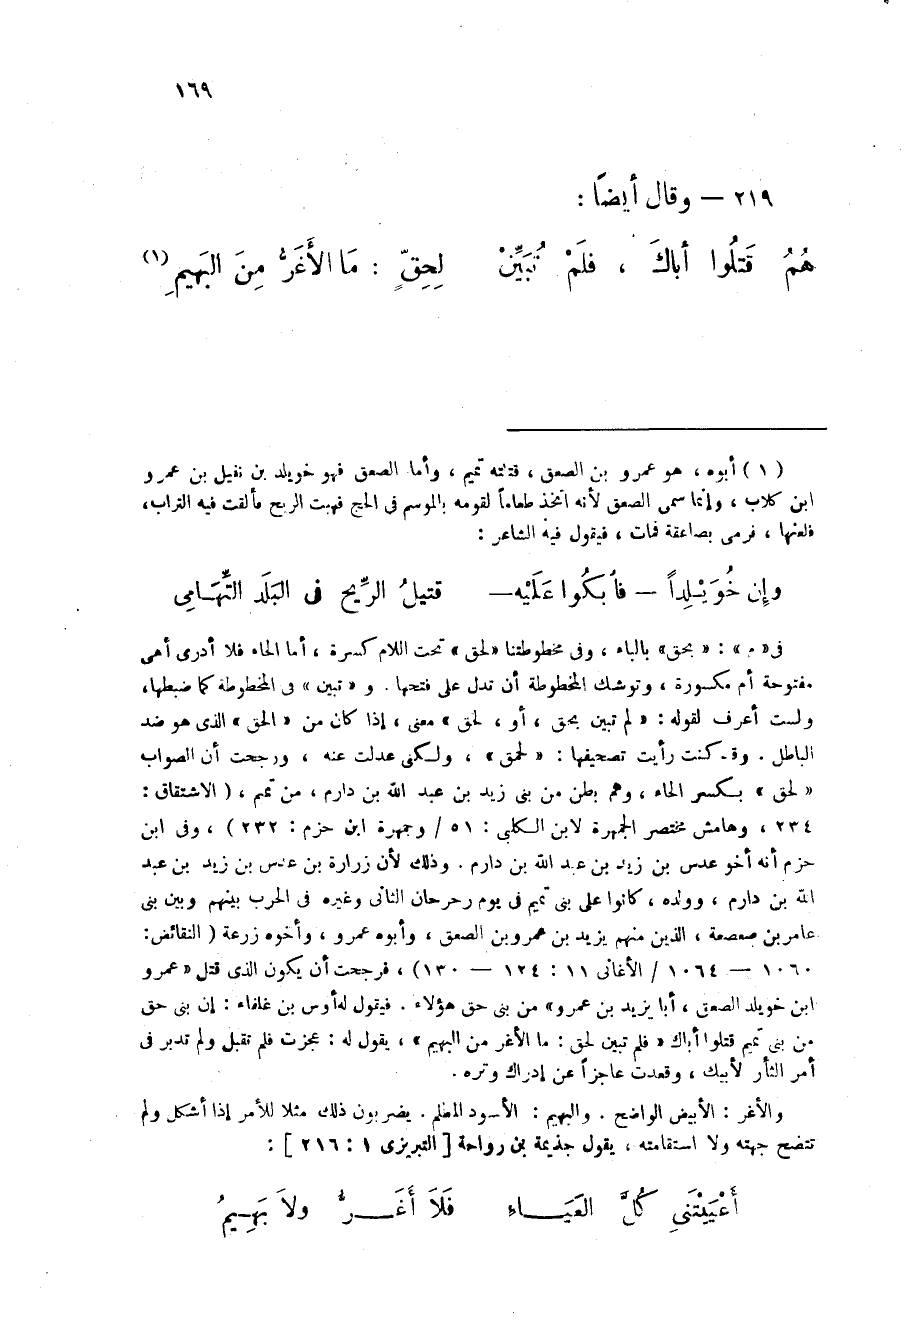 ١٦٩
٢١٩ — وقال أيضاً :
هُمُ قَتَلُوا أباكَ ، فلَمْ تُبَيِّنْ لِحِقٍّ : مَا الأَغَرُّ مِنَ البَهيمِ (١)
(١) أبوه ، هو عمرو بن الصعق ، قتلته تميم ، وأما الصعق فهو خويلد بن نفيل بن عمرو
ابن كلاب ، وإنما سمى الصعق لأنه اتخذ طعاماً لقومه بالموسم فى الحج فهبت الريح فألقت فيه التراب ،
فلعنها ، فرمى بصاعقة فمات ، فيقول فيه الشاعر :
وإن خُوَيْلِداً — فأبكُوا عَلَيْه— قتيلُ الرِّيح فى البَلَد التِّهَامِى
فى « م » : « بحق » بالباء ، وفى مخطوطتنا « لحق » تحت اللام كسرة ، أما الحاء فلا أدرى أهى
مفتوحة أم مكسورة ، وتوشك المخطوطة أن تدل على فتحها . و « تبين » فى المخطوطة كما ضبطها ،
ولست أعرف لقوله : « لم تبين بحق ، أو ، لحق » معنى ، إذا كان من « الحق » الذى هو ضد
الباطل . وقد كنت رأيت تصحيفها : « لحمق » ، ولكنى عدلت عنه ، ورجحت أن الصواب
« لحق » بكسر الحاء ، وهم بطن من بنى زيد بن عبد الله بن دارم ، من تميم ، ( الاشتقاق :
٢٣٤ ، وهامش مختصر الجمهرة لابن الكلبى : ٥١ / وجمهرة ابن حزم : ٢٣٢ ) ، وفى ابن
حزم أنه أخو عدس بن زيد بن عبد الله بن دارم . وذلك لأن زرارة بن عدس بن زيد بن عبد
الله بن دارم ، وولده ، كانوا على بنى تميم فى يوم رحرحان الثانى وغيره فى الحرب بينهم وبين بنى
عامر بن صعصعة ، الذين منهم يزيد بن عمرو بن الصعق ، وأبوه عمرو ، وأخوه زرعة ( النقائض :
١٠٦٠ — ١٠٦٤ / الأغانى ١١ : ١٢٤ — ١٣٠ ) ، فرجحت أن يكون الذى قتل « عمرو
ابن خويلد الصعق ، أبا يزيد بن عمرو » من بنى حق هؤلاء . فيقول له أوس بن غلفاء : إن بنى حق
من بنى تميم قتلوا أباك « فلم تبين لحق : ما الأغر من البهيم » ، يقول له : عجزت فلم تقبل ولم تدبر فى
أمر الثأر لأبيك ، وقعدت عاجزاً عن إدراك وتره .
والأغر : الأبيض الواضح . والبهيم : الأسود المظلم . يضربون ذلك مثلا للأمر إذا أشكل ولم
تتضح جهته ولا استقامته ، يقول جذيمة بن رواحة [ التبريزى ١ : ٢١٦ ] :
أَعْيَيْتَنِي كُلَّ العَيَـــاءِ فَلَا أَغَــــرُّ ولاَ بَهِـيمُ